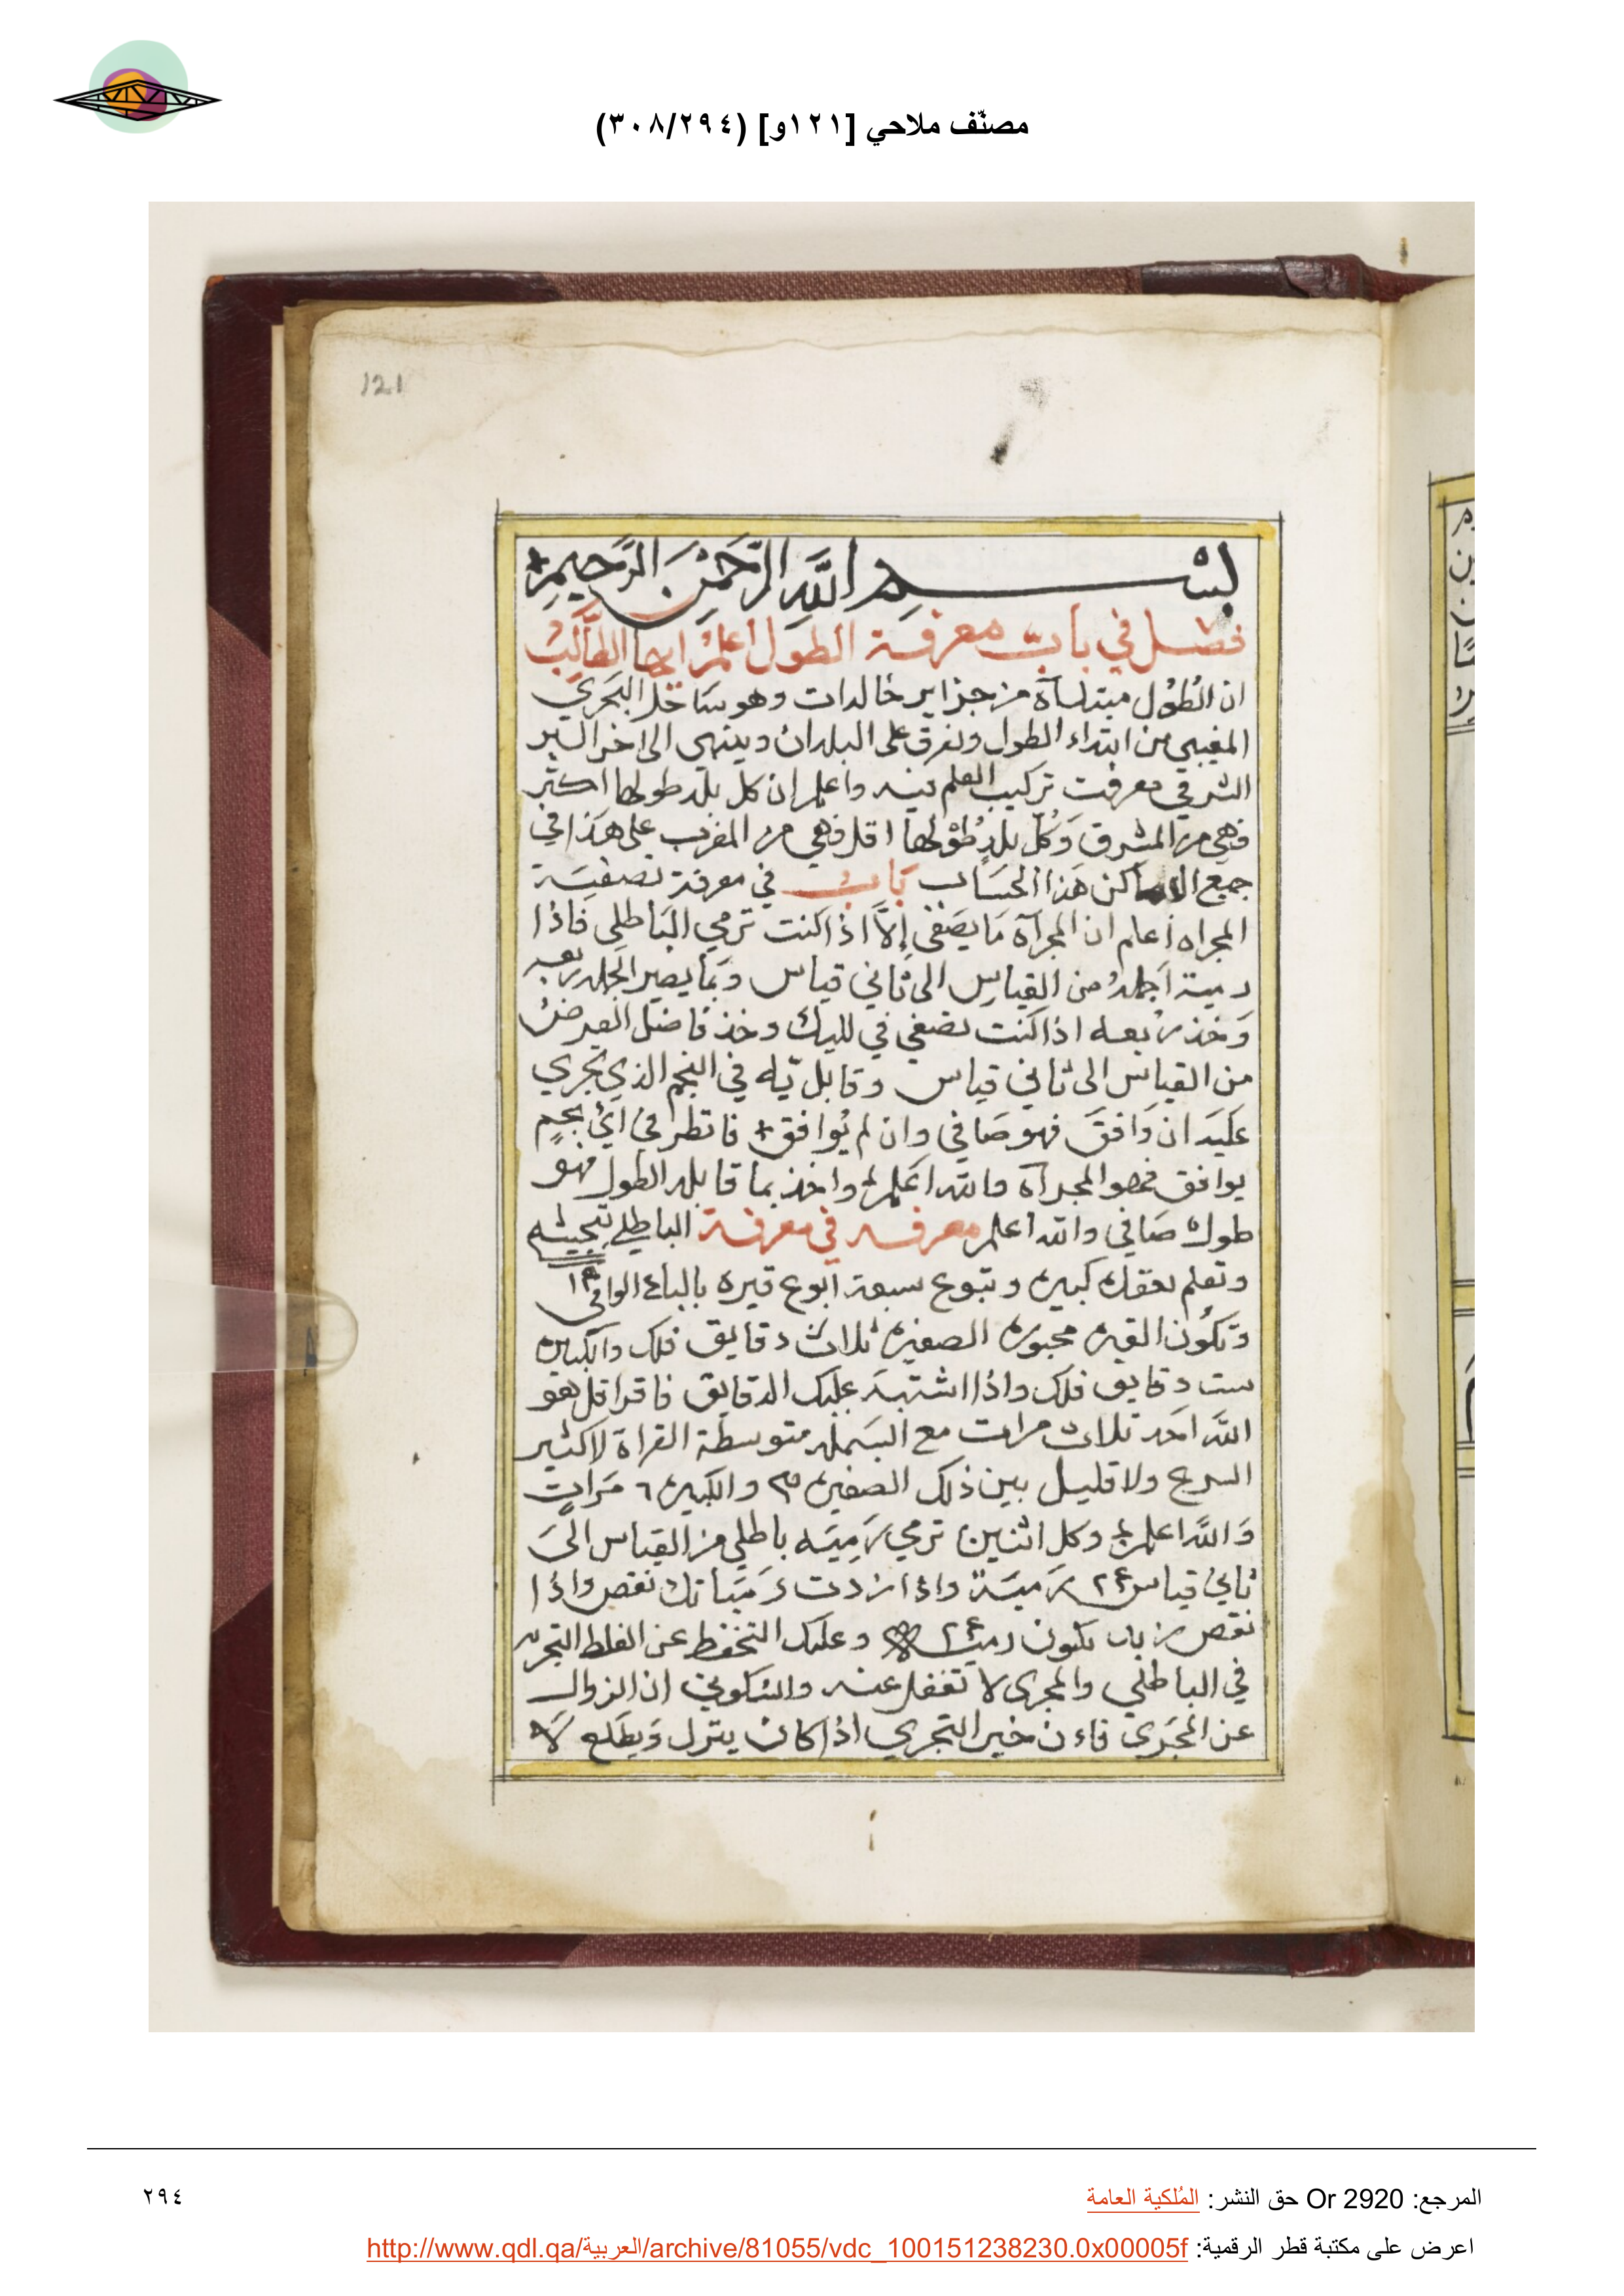 مصنّف ملاحي [١٢١و] (٣٠٨/٢٩٤)
121
بسم الله الرَّحْمَن الرَّحيمِ
فصل في باب معرفة الطول اعلم ايها الطالب
ان الطُوْل مبتداًه من جزاير خالدات وهو ساحل البحري
المغيبي من ابتداء الطول وتفرق على البلدان وينتهي الى اخر البر
الشرقي معرفت تركيب العلم فيه واعلم ان كل بلد طولها اكثر
فهي من المشرق وَكُلّ بلدٍ طُوْلها اقل فهي من المغرب على هَذا في
جمع الاماكن هَذا الحسَاب بَاب في معرفة تصفيَة
المجراه اعلم ان المجراَه مَا يَصَفى إلاَّ اذا كنت ترمي البَاطلي فاذا
رمية اجملهُ من القياسِ الى ثاني قياس وَبما يصير الجمله ربعه
وَخذ رُبعه اذا كنت تصَفي في لليك وخذ فاضل العرض
من القياس الى ثاني قياس وقابل به في النجم الذي تجري
عليَه ان وَافقَ فهو صَافي وان لم يُوافق فانظر في ايْ نجمٍ
يوافق فهو المجراَه والله اعَلم واخذ بما قابله الطول فهو
طول صَافي والله اعلم معرفه في معرفة الباطلي بتجيشه
وتعلم بعقله كبيره وتبوع سبعة ابوع قيره بالباع الوافي
وتكُون القيره محبوره الصغيره ثلاث دقايق فلك والكبيره
ست دقايق فلك واذا اشتبَه عليك الدقايق فاقرا قل هو
اللهَ احَد ثلاث مرات مع البسَمله متوسطة القراة لا كثير
السرع ولا قليل بين ذلك الصغيره ٣ والكبيره ٦ مَراتٍ
وَاللهَ اعلم وكل اثنين ترمي رَمِيَه باطلي من القياس الىَ
ثاني قياس ٢٤ رَميَةً واذا زدت رَميَاتك نقص واذا
نقص زياد تكون رميه ٢٤ وعليك التحفظ عن الغلط التجريه
في الباطلي والمجرى لا تغفل عنه والسكوني ان الزوال
عن المجَرى فاءن خير التجري اذا كان ينزل وَيطَلع لَا
المرجع: Or 2920 حق النشر: المُلكية العامة
٢٩٤
اعرض على مكتبة قطر الرقمية: http://www.qdl.qa/العربية/archive/81055/vdc_100151238230.0x00005f